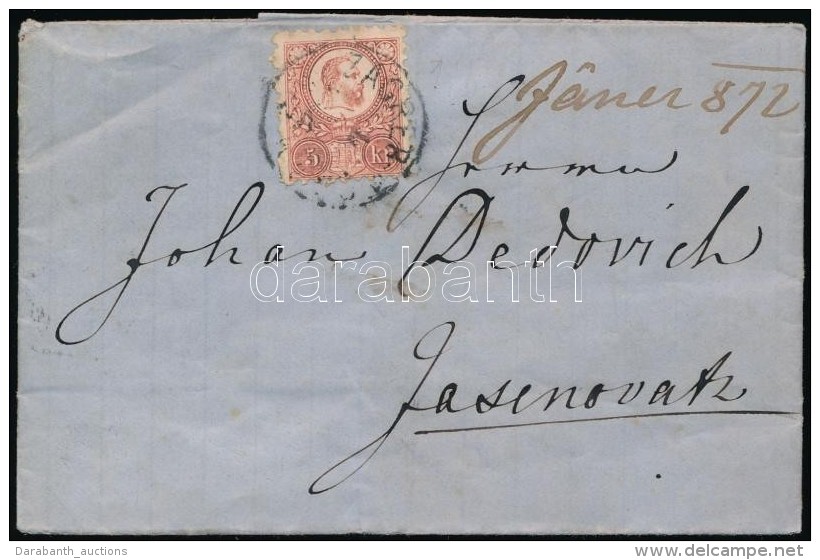 Jäner 872
Herrn
Johan Dedovich
Jasenovatz
5 kr
darabanth
Darabanth_auctions
www.delcampe.net